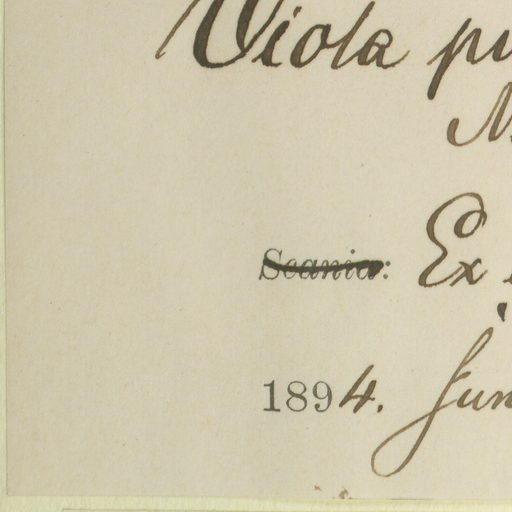 Viola
Scania: Ex
1894. Jun